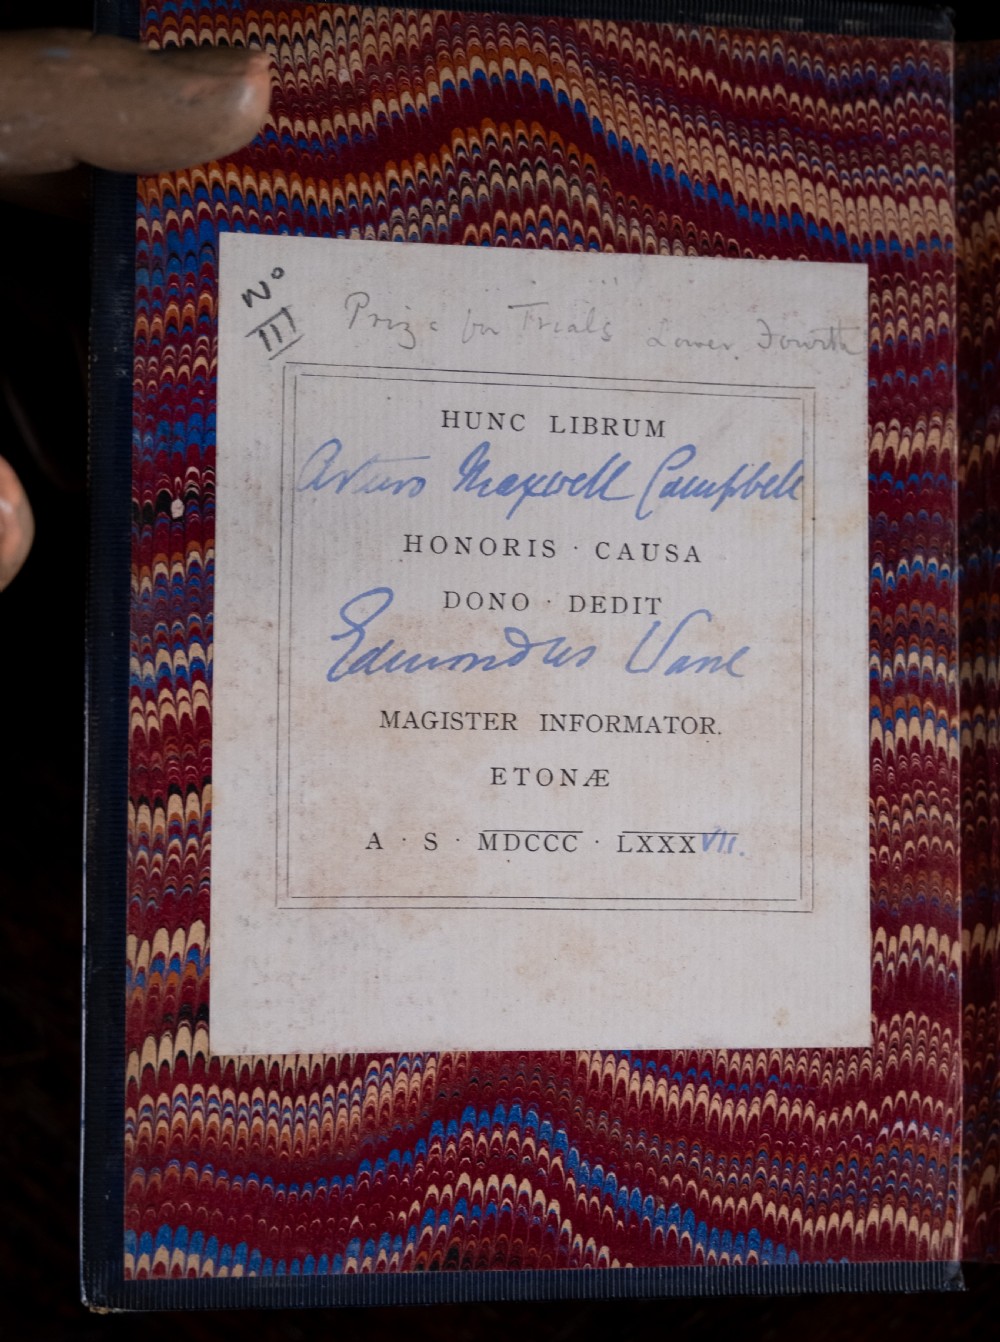 Nº
III
Prize for Trials Lower Fourth
HUNC LIBRUM
Arturo Maxwell Campbell
HONORIS · CAUSA
DONO · DEDIT
Edmondus Vane
MAGISTER INFORMATOR.
ETONÆ
A · S · MDCCC · LXXXVII.